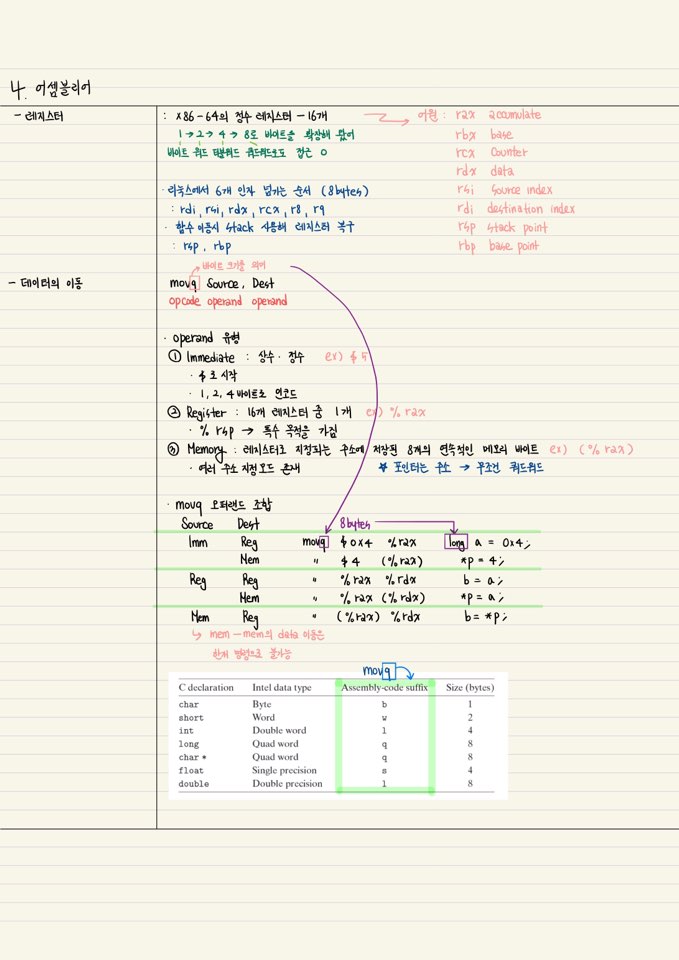 4. 어셈블리어
- 레지스터
: x86-64의 정수 레지스터 - 16개
1 → 2 → 4 → 8로 바이트을 확장해 왔어
바이트 워드 더블워드 쿼드워드로도 접근 O
어원 : rax accumulate
rbx base
rcx counter
rdx data
rsi source index
rdi destination index
rsp stack point
rbp base point
· 리눅스에서 6개 인자 넘기는 순서 (8bytes)
: rdi, rsi, rdx, rcx, r8, r9
· 함수 이용시 stack 사용해 레지스터 복구
: rsp, rbp
- 데이터의 이동
바이트 크기를 의미
movq Source, Dest
opcode operand operand
· operand 유형
① Immediate : 상수 · 정수 ex) $5
· $로 시작
· 1, 2, 4 바이트로 인코드
② Register : 16개 레지스터 중 1개 ex) %rax
· %rsp → 특수 목적을 가짐
③ Memory : 레지스터로 지정되는 주소에 저장된 8개의 연속적인 메모리 바이트 ex) (%rax)
· 여러 주소 지정모드 존재 ★ 포인터는 주소 → 무조건 쿼드워드
· movq 오퍼랜드 조합
Source Dest 8bytes
Imm Reg movq $0x4 %rax long a = 0x4;
Mem " $4 (%rax) *p = 4;
Reg Reg " %rax %rdx b = a;
Mem " %rax (%rdx) *p = a;
Mem Reg " (%rax) %rdx b = *p;
↳ mem - mem의 data 이동은
한개 명령으로 불가능
movq
C declaration Intel data type Assembly-code suffix Size (bytes)
char Byte b 1
short Word w 2
int Double word l 4
long Quad word q 8
char * Quad word q 8
float Single precision s 4
double Double precision l 8